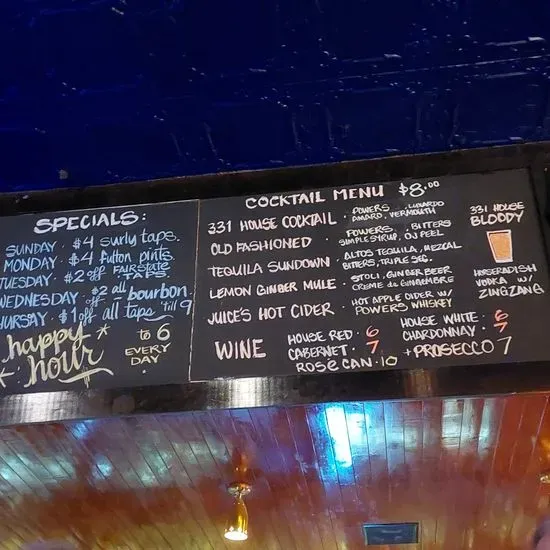 SPECIALS:
SUNDAY · $4 surly taps.
MONDAY · $4 fulton pints.
TUESDAY · $2 off FAIRSTATE TAPS
WEDNESDAY · $2 off all bourbon
THURSDAY · $1 off all taps 'till 9
happy hour
to 6
EVERY
DAY
COCKTAIL MENU $8.00
331 HOUSE COCKTAIL · POWERS, LUXARDO
AMARO, VERMOUTH
OLD FASHIONED · POWERS, BITTERS
SIMPLE SYRUP, OJ PEEL
TEQUILA SUNDOWN · ALTOS TEQUILA, MEZCAL
BITTERS, TRIPLE SEC.
LEMON GINGER MULE · STOLI, GINGER BEER
CREME de GINGEMBRE
JUICE'S HOT CIDER · HOT APPLE CIDER W/
POWERS WHISKEY
331 HOUSE
BLOODY
HORSERADISH
VODKA W/
ZING ZANG
WINE
HOUSE RED · 6
CABERNET · 7
ROSÉ CAN · 10
HOUSE WHITE · 6
CHARDONNAY · 7
+ PROSECCO 7